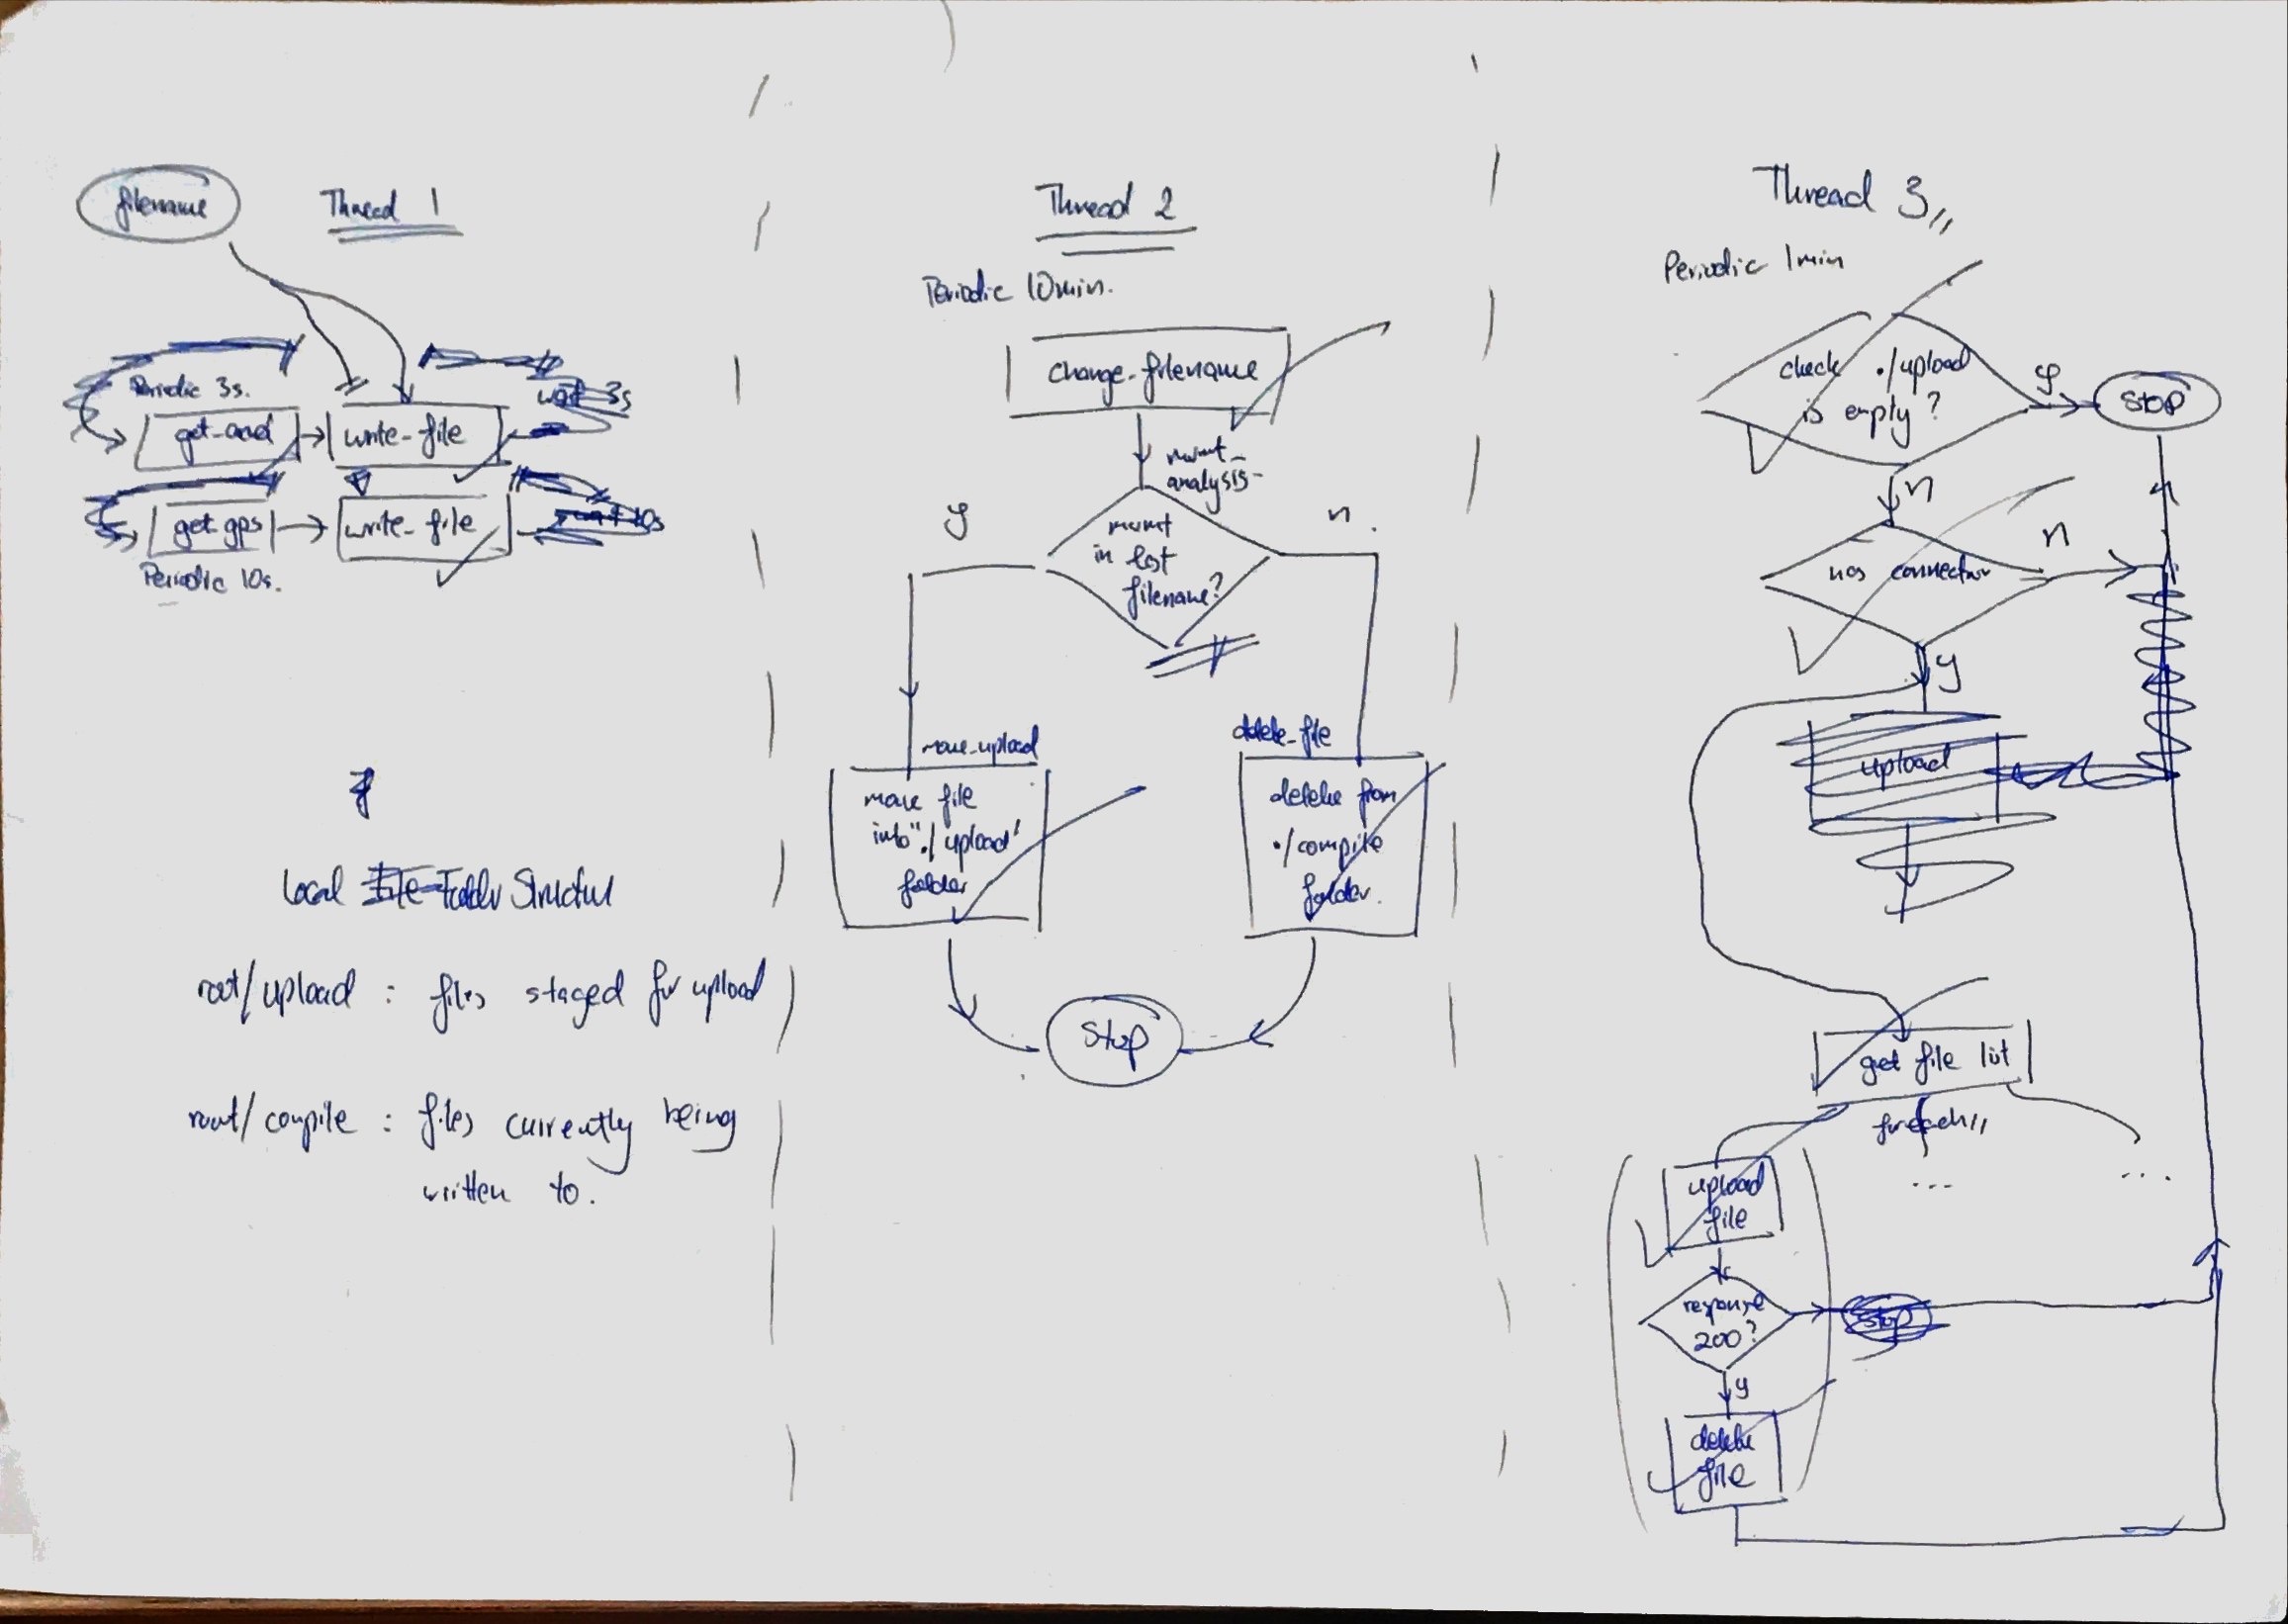 filename
Thread 1
Periodic 3s.
wait 3s
write-file
get-gps
write-file
10s
Periodic 10s.
Local File Folder Structur
root/upload : files staged for upload
root/compile : files currently being
written to.
Thread 2
Periodic 10min.
change-filename
mvmt-
analysis-
y
n.
mvmt
in last
filename?
move-upload
move file
into "./upload'
folder
delete-file
delete from
./compile
folder.
Stop
Thread 3
Periodic 1min
check ./upload
is empty ?
y
stop
n
has connection
n
y
upload
get file list
foreach
... ...
upload
file
response
200?
stop
y
delete
file